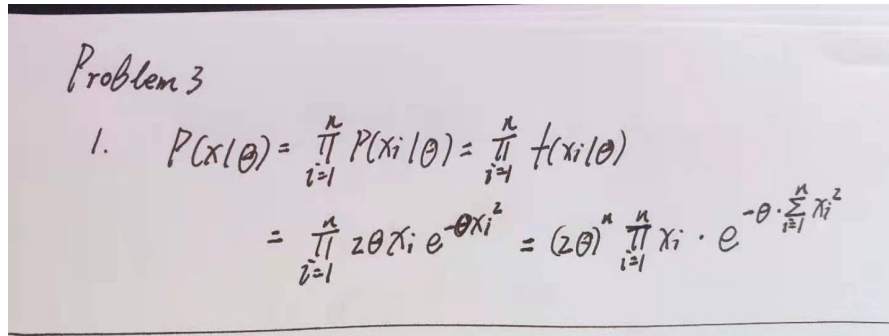 Problem 3
1. P(x|θ) = ∏_{i=1}^{n} P(xi|θ) = ∏_{i=1}^{n} f(xi|θ)
= ∏_{i=1}^{n} 2θxi e^{-θxi^2} = (2θ)^n ∏_{i=1}^{n} xi · e^{-θ·∑_{i=1}^{n} xi^2}